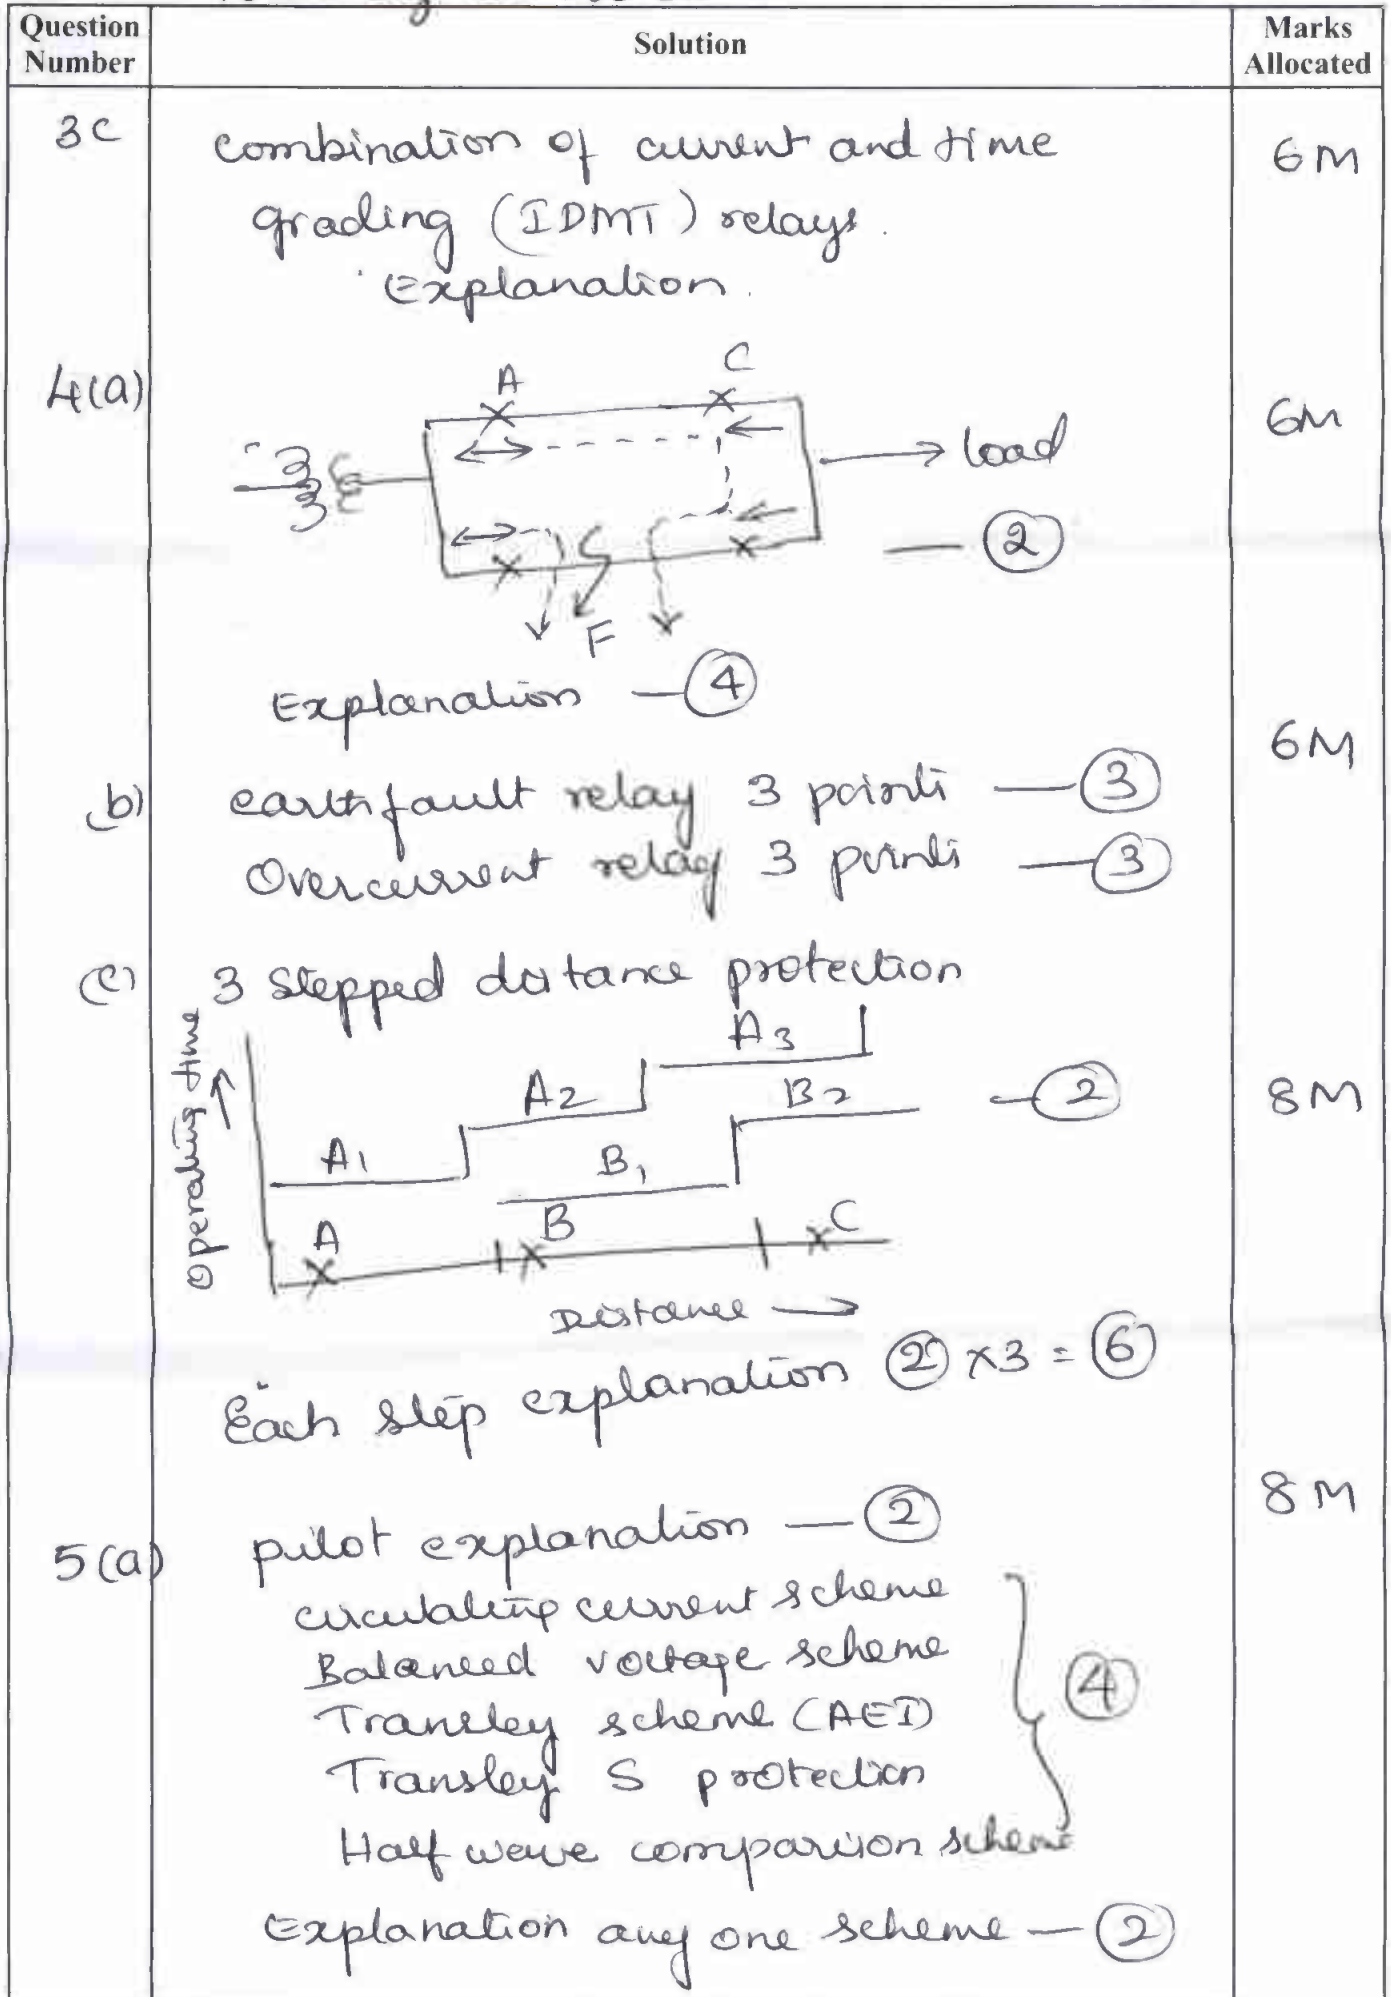 Question Number
Solution
Marks Allocated
3C
combination of current and time
6M
grading (IDMT) relays.
Explanation.
4(a)
A
C
6M
load
2
F
Explanation — 4
6M
b)
earth fault relay 3 points — 3
Overcurrent relay 3 points — 3
(c)
3 stepped distance protection
Operating time
A3
A2
B2
— 2
8M
A1
B1
A
B
C
Distance
Each step explanation 2 x3 = 6
8M
5(a)
pilot explanation — 2
circulating current scheme
Balanced voltage scheme
4
Transley scheme (AEI)
Transley S protection
Half wave comparison scheme
Explanation any one scheme — 2